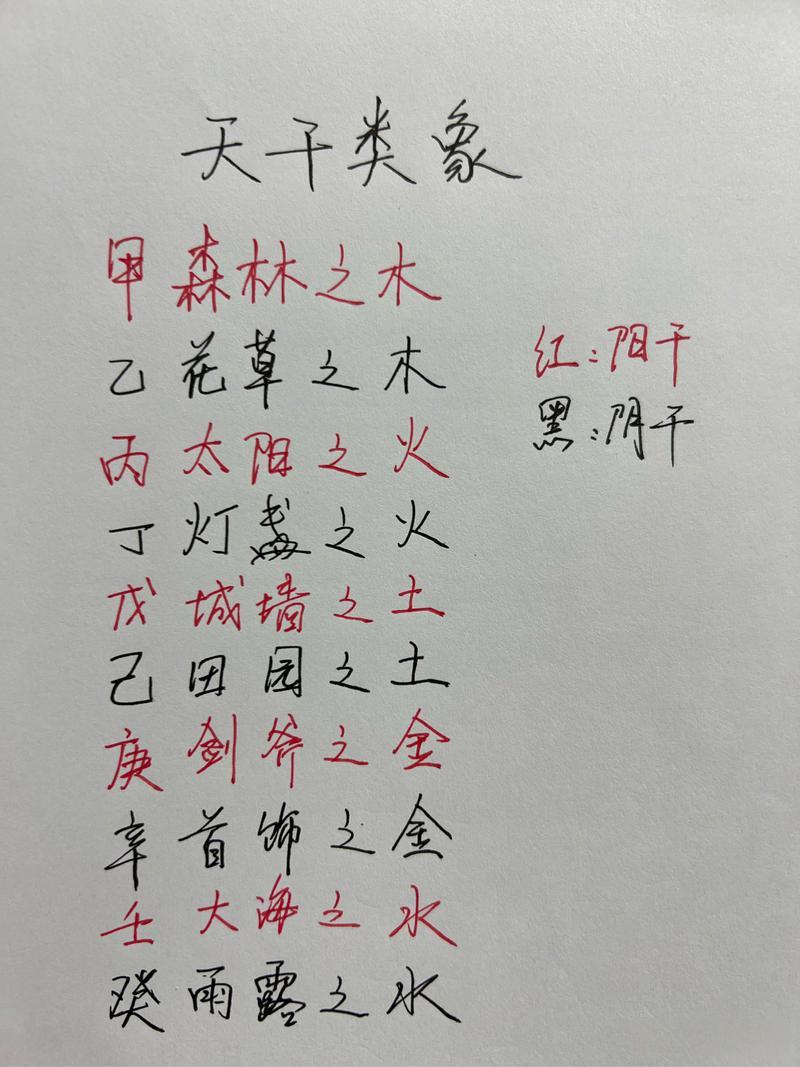 天干类象
甲 森林之木
乙 花草之木
丙 太阳之火
丁 灯盏之火
戊 城墙之土
己 田园之土
庚 剑斧之金
辛 首饰之金
壬 大海之水
癸 雨露之水
红：阳干
黑：阴干